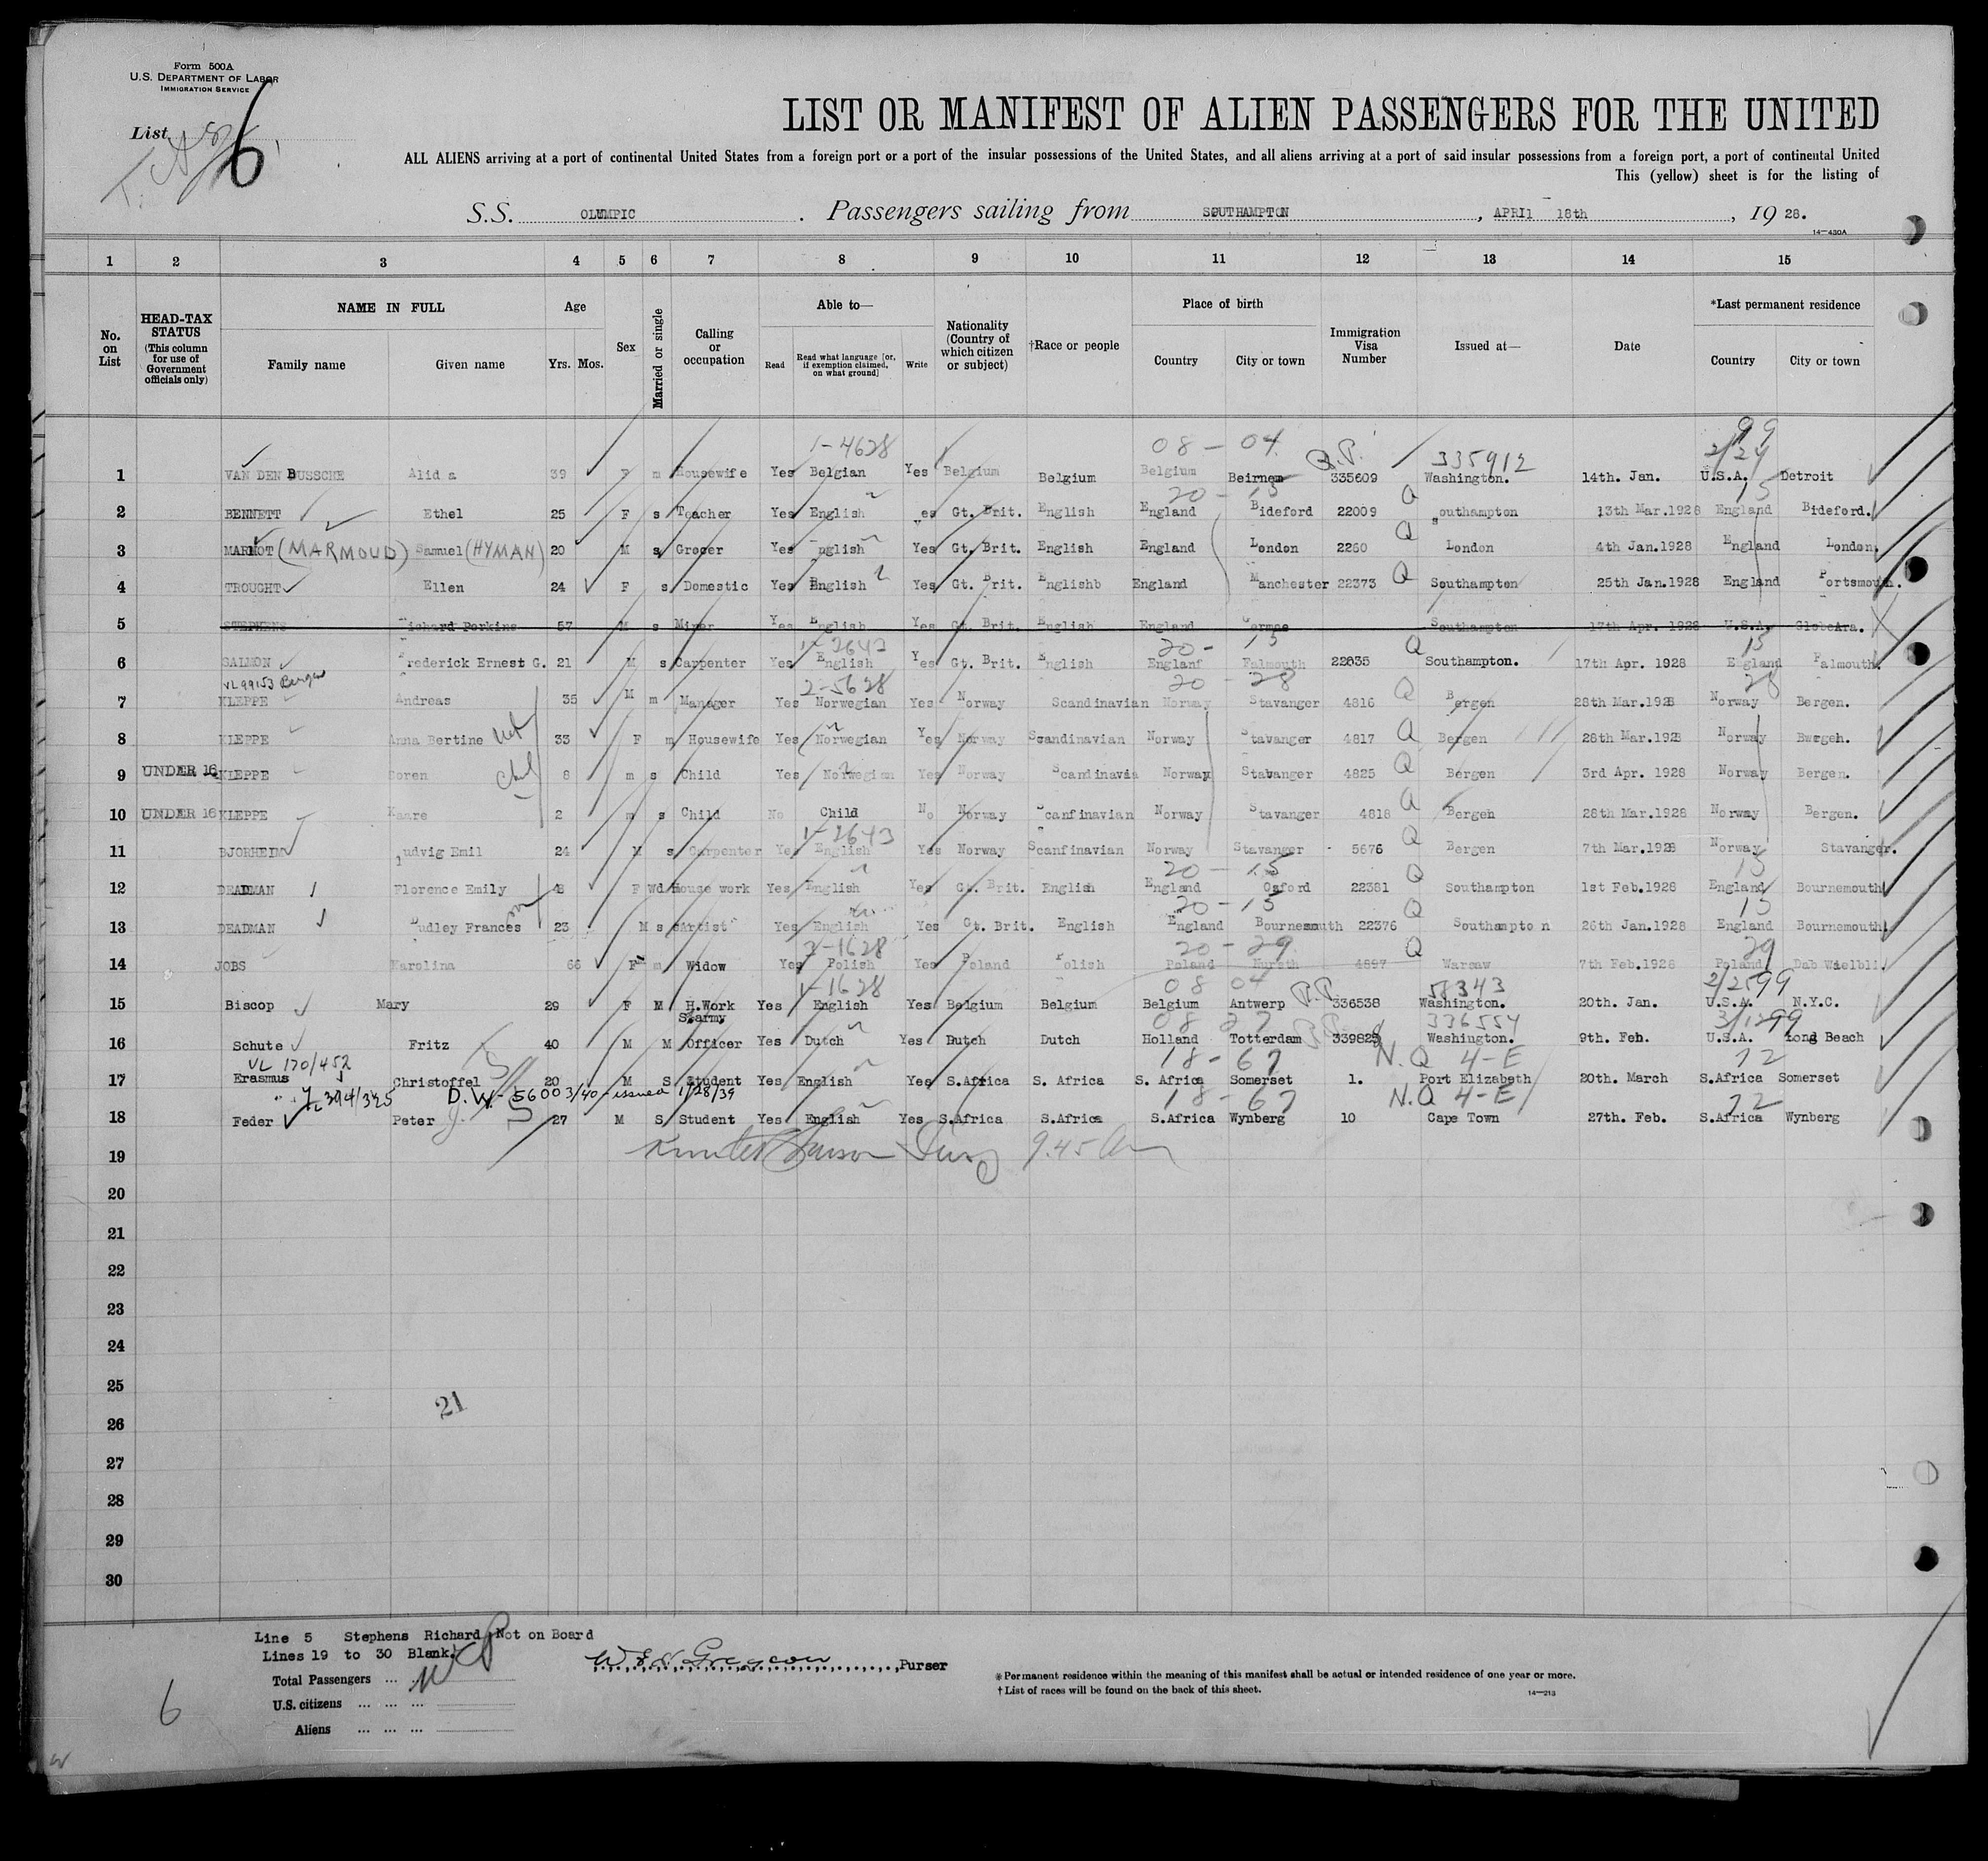 Form 500A
U.S. DEPARTMENT OF LABOR
IMMIGRATION SERVICE
List 6
LIST OR MANIFEST OF ALIEN PASSENGERS FOR THE UNITED
ALL ALIENS arriving at a port of continental United States from a foreign port or a port of the insular possessions of the United States, and all aliens arriving at a port of said insular possessions from a foreign port, a port of continental United
This (yellow) sheet is for the listing of
S.S. OLYMPIC . Passengers sailing from SOUTHAMPTON , APRIl 18th , 19 28.
14—430A
1 2 3 4 5 6 7 8 9 10 11 12 13 14 15
No. on List
HEAD-TAX STATUS (This column for use of Government officials only)
NAME IN FULL Family name Given name
Age Yrs. Mos.
Sex
Married or single
Calling or occupation
Able to— Read Read what language [or, if exemption claimed, on what ground] Write
Nationality (Country of which citizen or subject)
†Race or people
Place of birth Country City or town
Immigration Visa Number
Issued at—
Date
*Last permanent residence Country City or town
1-4628 08-04 P.P. 335912 2/24 99
1 VAN DEN BUSSCHE Alid a 39 F m Housewife Yes Belgian Yes Belgium Belgium Belgium Beirnem 335609 Washington. 14th. Jan. U.S.A. Detroit
20-15 Q 15
2 BENNETT Ethel 25 F s Teacher Yes English Yes Gt. Brit. English England Bideford 22009 Southampton 13th Mar.1928 England Bideford.
3 MARMOT (MARMOUD) Samuel (HYMAN) 20 M s Grocer Yes English Yes Gt. Brit. English England London 2260 Q London 4th Jan.1928 England London.
4 TROUGHT Ellen 24 F s Domestic Yes English Yes Gt. Brit. Englishb England Manchester 22373 Q Southampton 25th Jan.1928 England Portsmouth.
5 STEPHENS Richard Perkins 57 M s Miner Yes English Yes Gt. Brit. English England Southampton 17th Apr. 1928 U.S.A.
1-2643 20-15 Q 15
6 SALMON Frederick Ernest G. 21 M s Carpenter Yes English Yes Gt. Brit. English Englanf Falmouth 22835 Southampton. 17th Apr. 1928 England Falmouth.
VL 99153 Bergen 2-5628 20-28 28
7 KLEPPE Andreas 35 M m Manager Yes Norwegian Yes Norway Scandinavian Norway Stavanger 4816 Q Bergen 28th Mar.1928 Norway Bergen.
8 KLEPPE Anna Bertine 33 F m Housewife Yes Norwegian Yes Norway Scandinavian Norway Stavanger 4817 Q Bergen 28th Mar.1928 Norway Bergen.
9 UNDER 16 KLEPPE Soren 8 m s Child Yes Norwegian Yes Norway Scandinavia Norway Stavanger 4825 Q Bergen 3rd Apr. 1928 Norway Bergen.
10 UNDER 16 KLEPPE Kaare 2 m s Child No Child No Norway Scanfinavian Norway Stavanger 4818 Q Bergen 28th Mar.1928 Norway Bergen.
1-2643
11 BJORHEIM Ludvig Emil 24 M s Carpenter Yes English Yes Norway Scanfinavian Norway Stavanger 5676 Q Bergen 7th Mar.1928 Norway Stavanger.
20-15 Q 15
12 DEADMAN Florence Emily 48 F Wd House work Yes English Yes Gt. Brit. English England Oxford 22381 Southampton 1st Feb.1928 England Bournemouth
20-15 Q 15
13 DEADMAN Dudley Frances 23 M s Artist Yes English Yes Gt. Brit. English England Bournemouth 22376 Southampto n 26th Jan.1928 England Bournemouth
2-1628 20-29 Q 29
14 JOBS Karolina 66 F m Widow Yes Polish Yes Poland Polish Poland 4897 Warsaw 7th Feb.1928 Poland
1-1628 08 04 P.P. 58343 2/25 99
15 Biscop Mary 29 F M H.Work Yes English Yes Belgium Belgium Belgium Antwerp 336538 Washington. 20th. Jan. U.S.A. N.Y.C.
08 27 P.P. 336554 99
16 Schute Fritz 40 M M S.army Officer Yes Dutch Yes Dutch Dutch Holland Totterdam 339825 Washington. 9th. Feb. U.S.A. Long Beach
VL 170/452 18-67 N.Q 4-E 72
17 Erasmus Christoffel 20 M S Student Yes English Yes S.Africa S. Africa S. Africa Somerset 1. Port Elizabeth 20th. March S.Africa Somerset
394/395 D.W.-56003/40-issued 1/28/39 18-67 N.Q 4-E 72
18 Feder Peter J. 27 M S Student Yes English Yes S.Africa S.Africa S.Africa Wynberg 10 Cape Town 27th. Feb. S.Africa Wynberg
19 9.45 am
20
21
22
23
24
25
21
26
27
28
29
30
Line 5 Stephens Richard Not on Board
Lines 19 to 30 Blank.
Purser
Total Passengers ... ...
U.S. citizens ... ... ...
Aliens ... ... ...
*Permanent residence within the meaning of this manifest shall be actual or intended residence of one year or more.
†List of races will be found on the back of this sheet.
14—213
6